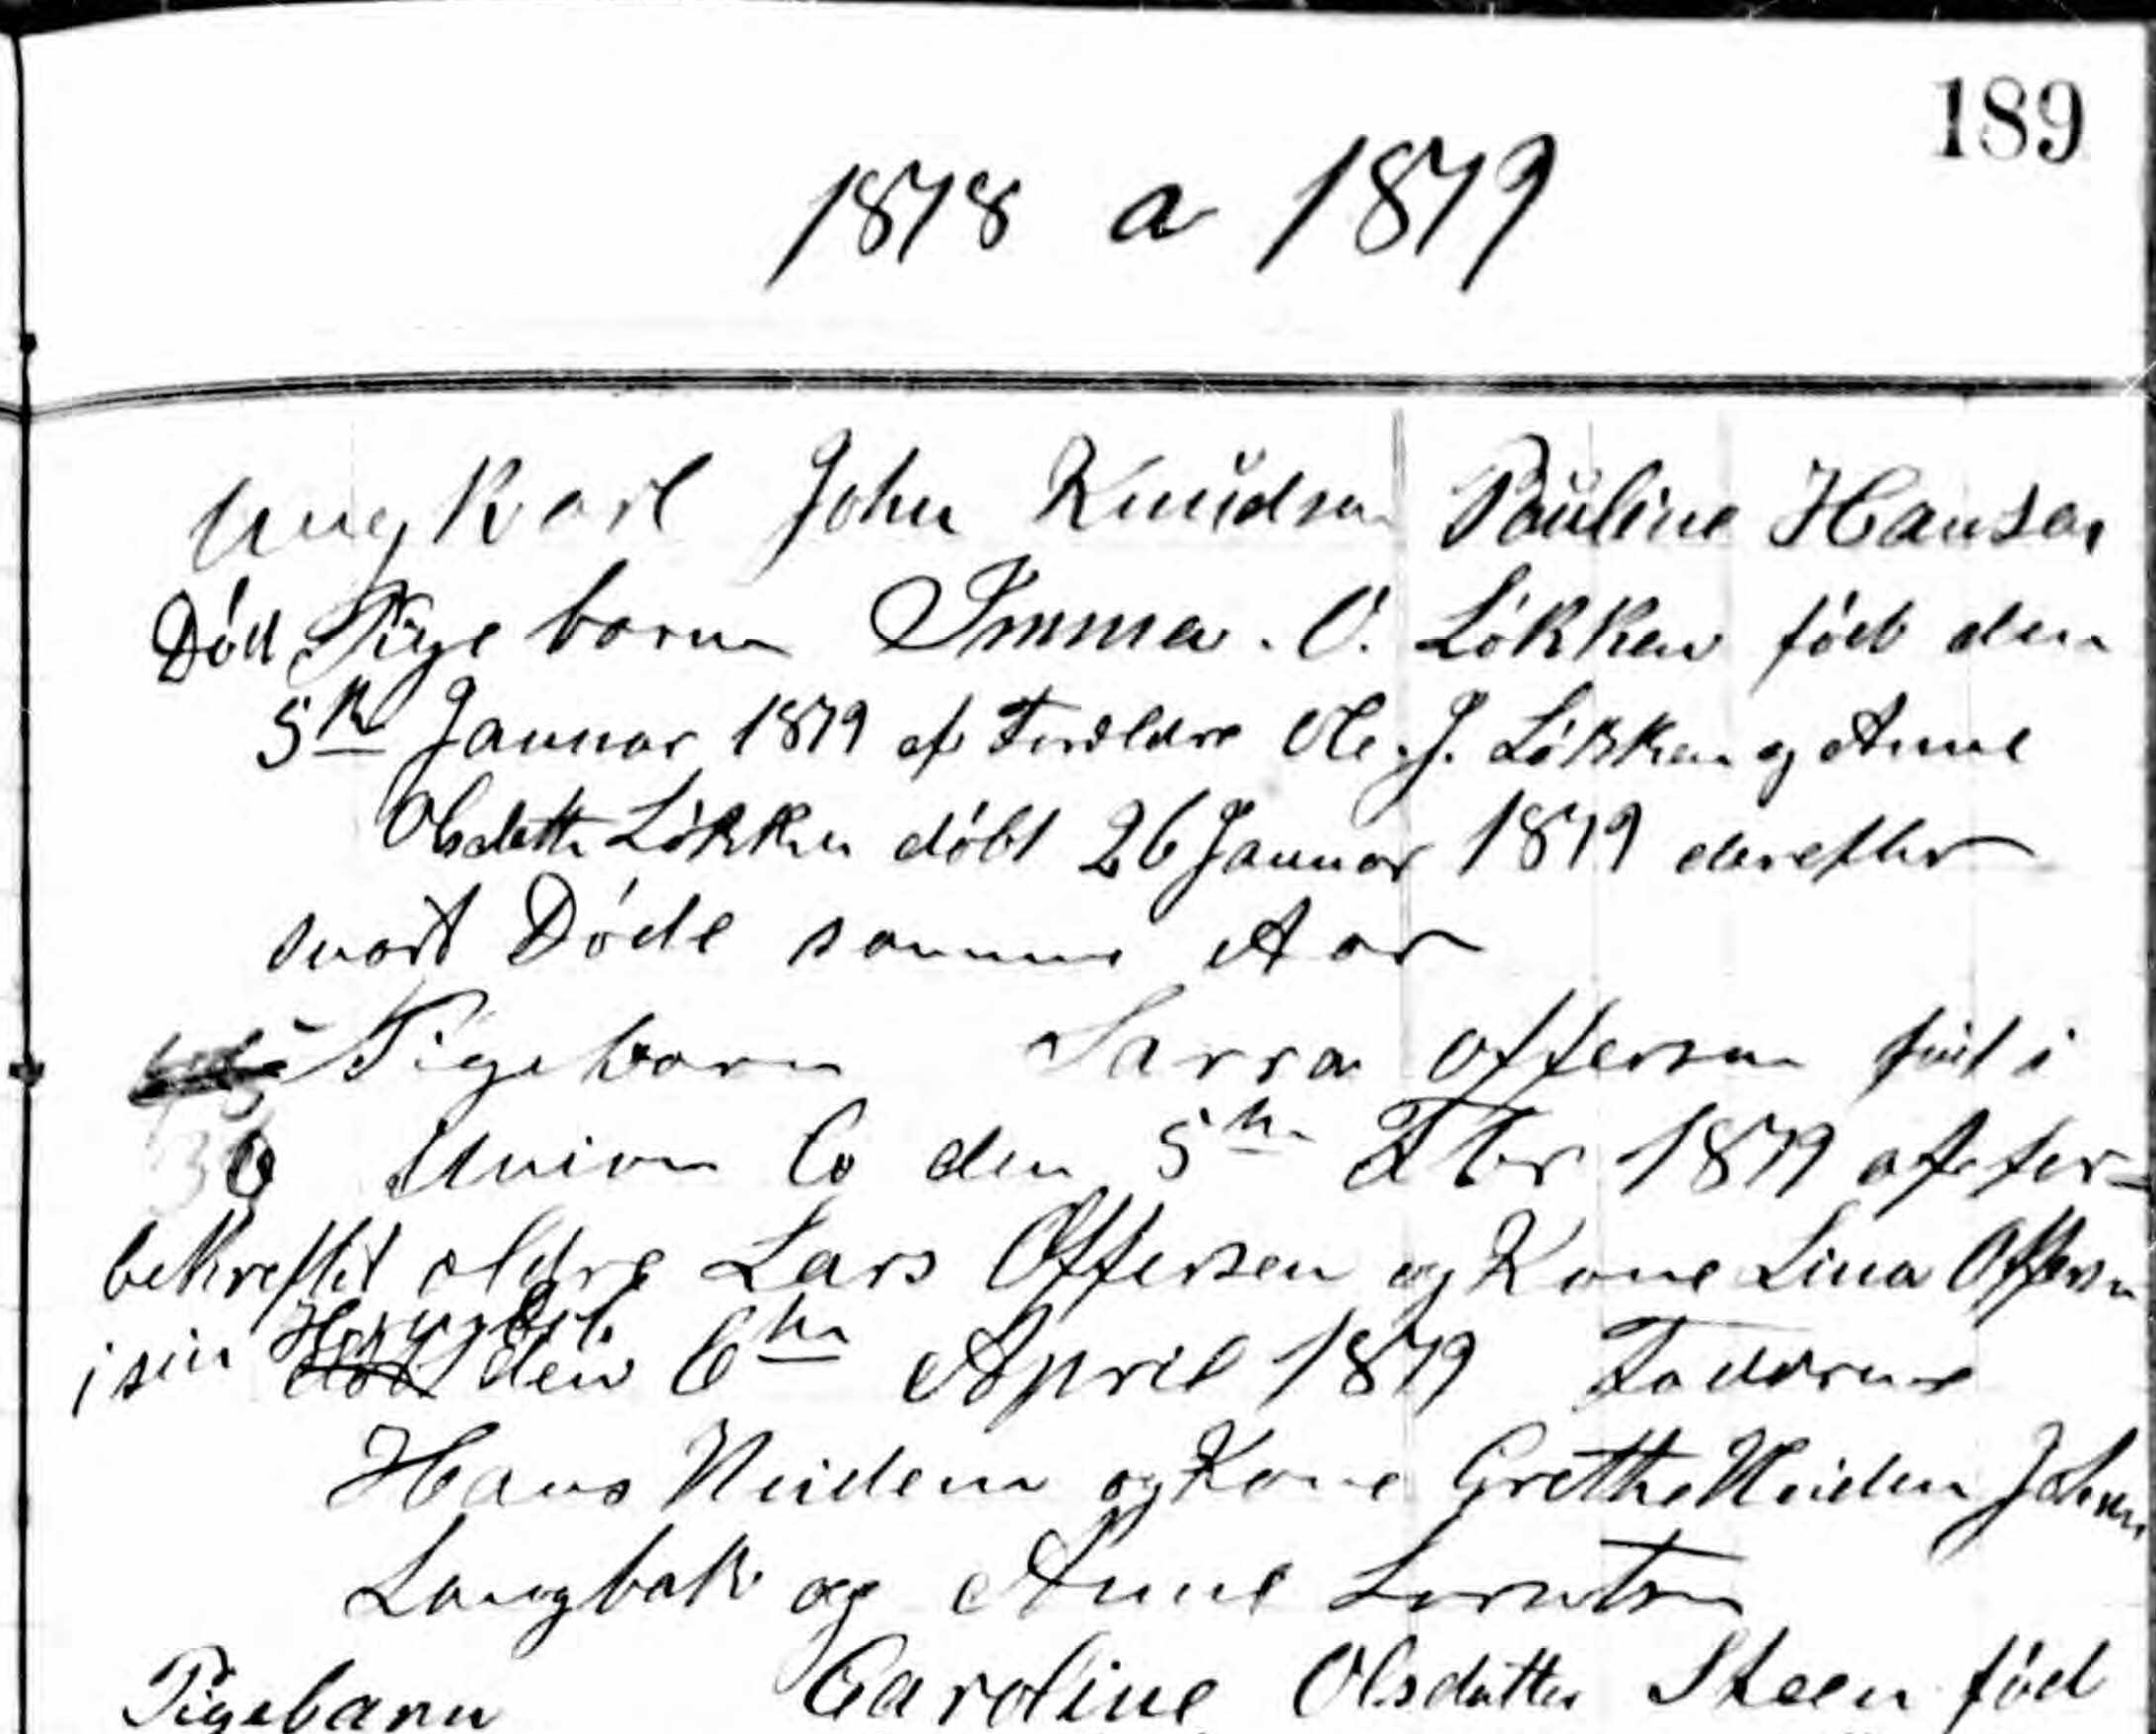 189
1878 a 1879
Ungkarl John Knudsen Pauline Hansen
Död Pige barn Emma. O. Lökken föd den
5te Januar 1879 af Foreldre Ole. J. Lökken og Anne
Olsdatter Lökken döbt 26 Januar 1879 derefter
snart Döde samme Aar
Pigebarn Sarra Offersen föd i
Union Co den 5te Fbr 1879 af for=
bekreftet oldre Lars Offersen og Kone Lina Offersen
i sin den 6te April 1879 Faddrene
Hans og Kone Grethe John
Langbak og Anne Lorntsen
Pigebarn Caroline Olsdatter Steen föd